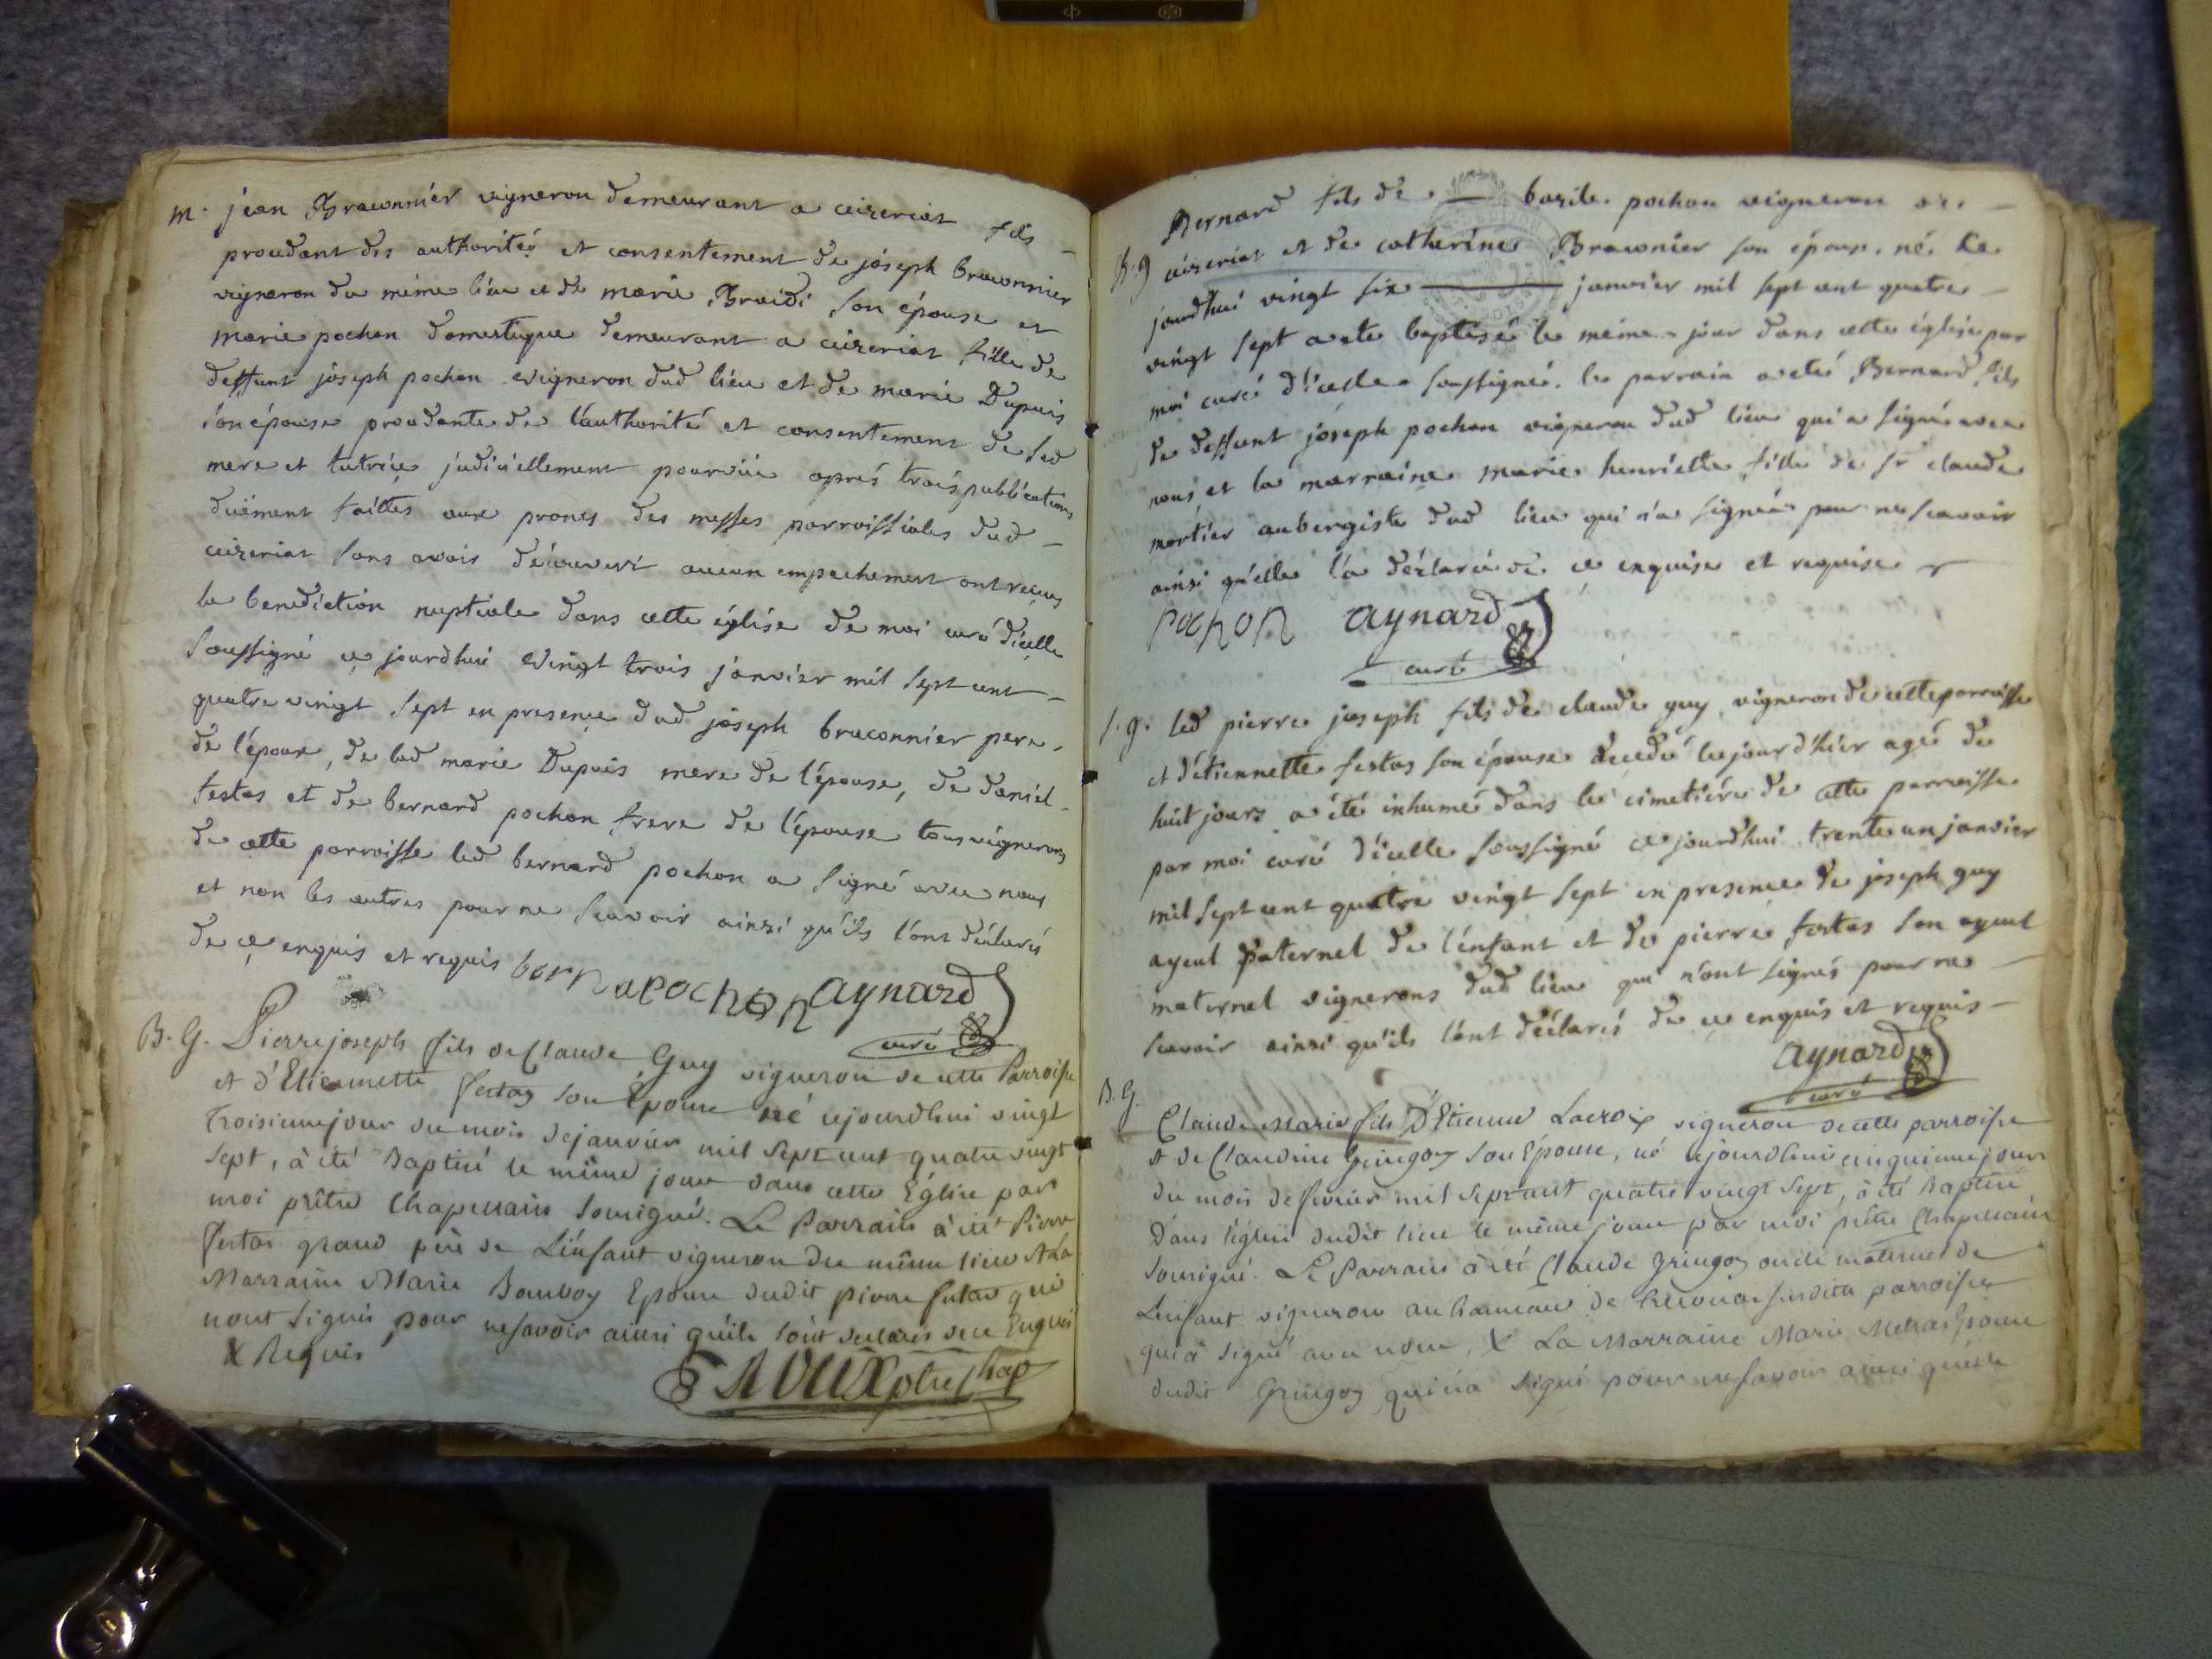 m. jean Braconnier vigneron demeurant a ceizeriat fils
proudant des authorités et consentement de joseph braconnier
vigneron du même lieu et de marie Braidi son épouse et
marie pochon domestique demeurant a ceizeriat fille de
deffunt joseph pochon vigneron dud lieu et de marie Dupuis
son épouse proudante de l'authorité et consentement de sad
mere et tutrice judiciellement pourvüe aprés trois publications
düement faittes aux prones des messes parroissiales dud
ceizeriat sans avoir découvert aucun empechement ont reçus
la benediction nuptiale dans cette église de moi curé d'icelle
soussigné ce jourdhui vingt trois janvier mil sept cent
quatre vingt sept en presence dud joseph braconnier pere
de l'époux, de lad marie Dupuis mere de l'épouse, de daniel
festas et de bernard pochon frere de l'épouse tous vignerons
de cette parroisse led bernard pochon a signé avec nous
et non les autres pour ne scavoir ainsi qu'ils l'ont déclarés
de ce enquis et requis berna pochon aynard
curé
B. G. Pierre joseph fils de Claude Guy vigneron de cette Parroisse
et d'Etiennette festas son Epouse né cejourdhui vingt
troisieme jour du mois de janvier mil sept cent quatre vingt
sept, à été Baptisé le même jour dans cette Eglise par
moi prêtre Chapelain sousigné. Le Parrain à été Pierre
festas grand père de L'enfant vigneron du même lieu et La
Marraine Marie Bonboy Epouse dudit pierre festas qui
n'ont signés pour ne savoir ainsi qu'ils l'ont declarés de ce Enquis
& Requis
ptre Chap
Bernard fils de bazile pochon vigneron de
B. g ceizeriat et de catherine Braconier son épouse né ce
jourdhui vingt six janvier mil sept cent quatre
vingt sept a été baptisé le même jour dans cette église par
moi curé d'icelle soussigné. le parrain a eté Bernard fils
de deffunt joseph pochon vigneron dud lieu qui a signé avec
nous et la marraine marie henriette fille de sr claude
mortier aubergiste dud lieu qui n'a signée pour ne scavoir
ainsi qu'elle l'a déclaré de ce enquise et requise
pochon aynard
curé
S. g. led pierre joseph fils de claude guy vigneron de cette parroisse
et d'étiennette festas son épouse décédé le jour d'hier agé de
huit jours a été inhumé dans le cimetiére de cette parroisse
par moi curé d'icelle soussigné ce jourdhui trente un janvier
mil sept cent quatre vingt sept en presence de joseph guy
ayeul paternel de l'enfant et de pierre festas son ayeul
maternel vignerons dud lieu qui n'ont signés pour ne
scavoir ainsi qu'ils l'ont déclarés de ce enquis et requis
aynard
curé
B. G.
Claude Marie fils D'Etienne Lacroix vigneron de cette parroisse
et de Claudine Gringoz son Epouse, né cejourdhui cinquieme jour
du mois de fevrier mil sept cent quatre vingt sept, à été Baptisé
Dans l'église dudit lieu le même jour par moi prêtre Chapelain
sousigné. Le Parrain à été Claude Gringoz oncle maternel de
L'enfant vigneron au hameau de susdite parroisse
qui à signé avec nous, & La Marraine Marie Metras Epouse
dudit Gringoz qui n'a signé pour ne savoir ainsi qu'elle